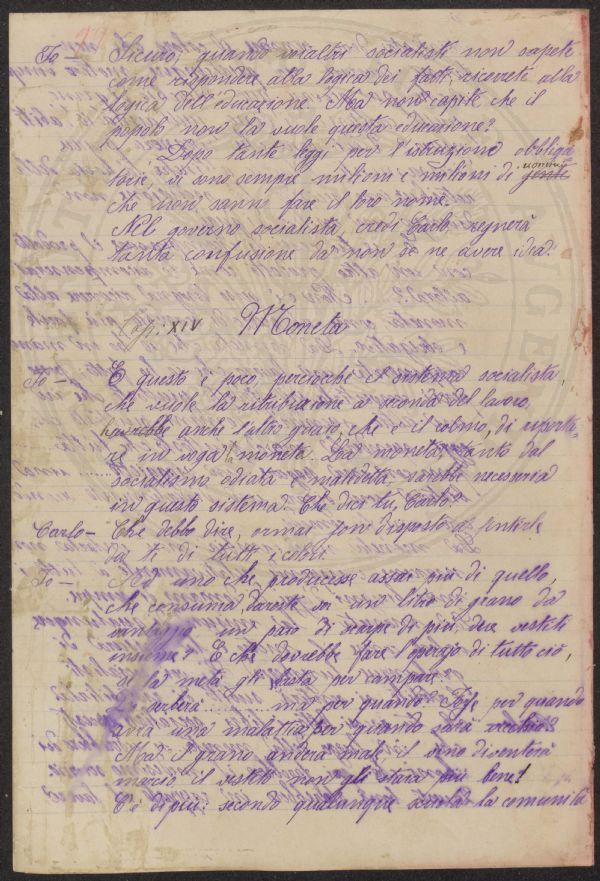 Io — Sicuro, quando voialtri socialisti non sapete
come rispondere alla logica dei fatti ricorrete alla
logica dell'educazione. Ma non capite che il
popolo non la vuole questa educazione?
Dopo tante leggi per l'istruzione obbliga
toria, vi sono sempre milioni e milioni di gente uomini
che non sanno fare il loro nome.
Nel governo socialista, credi Carlo, regnerà
tanta confusione da non se ne avere idea.
Cap. XIV Moneta
Io — E questo è poco, perciocchè il sistema socialista,
che vuole la retribuzione a seconda del lavoro,
avrebbe anche l'altro guaio, che è il colmo, di riporta
re in voga la moneta. La moneta, tanto dal
socialismo odiata e maledetta sarebbe necessaria
in questo sistema. Che dici tu, Carlo?
Carlo — Che debbo dire, ormai son disposto a sentirle
da te di tutti i colori
Io — Ad uno che producesse assai più di quello,
che consuma, dareste voi un litro di grano da
vantaggio un paio di scarpe di più, due vestiti
insieme? E che dovrebbe fare l'operajo di tutto ciò,
se la metà gli basta per campare?
Li serberà ...... ma per quando? Forse per quando
avrà una malattia, per quando sarà vecchio?
Ma il grano anderà male il vino diventerà
marcio il vestito non gli starà più bene!
C'è di più: secondo qualunque scuola la comunità